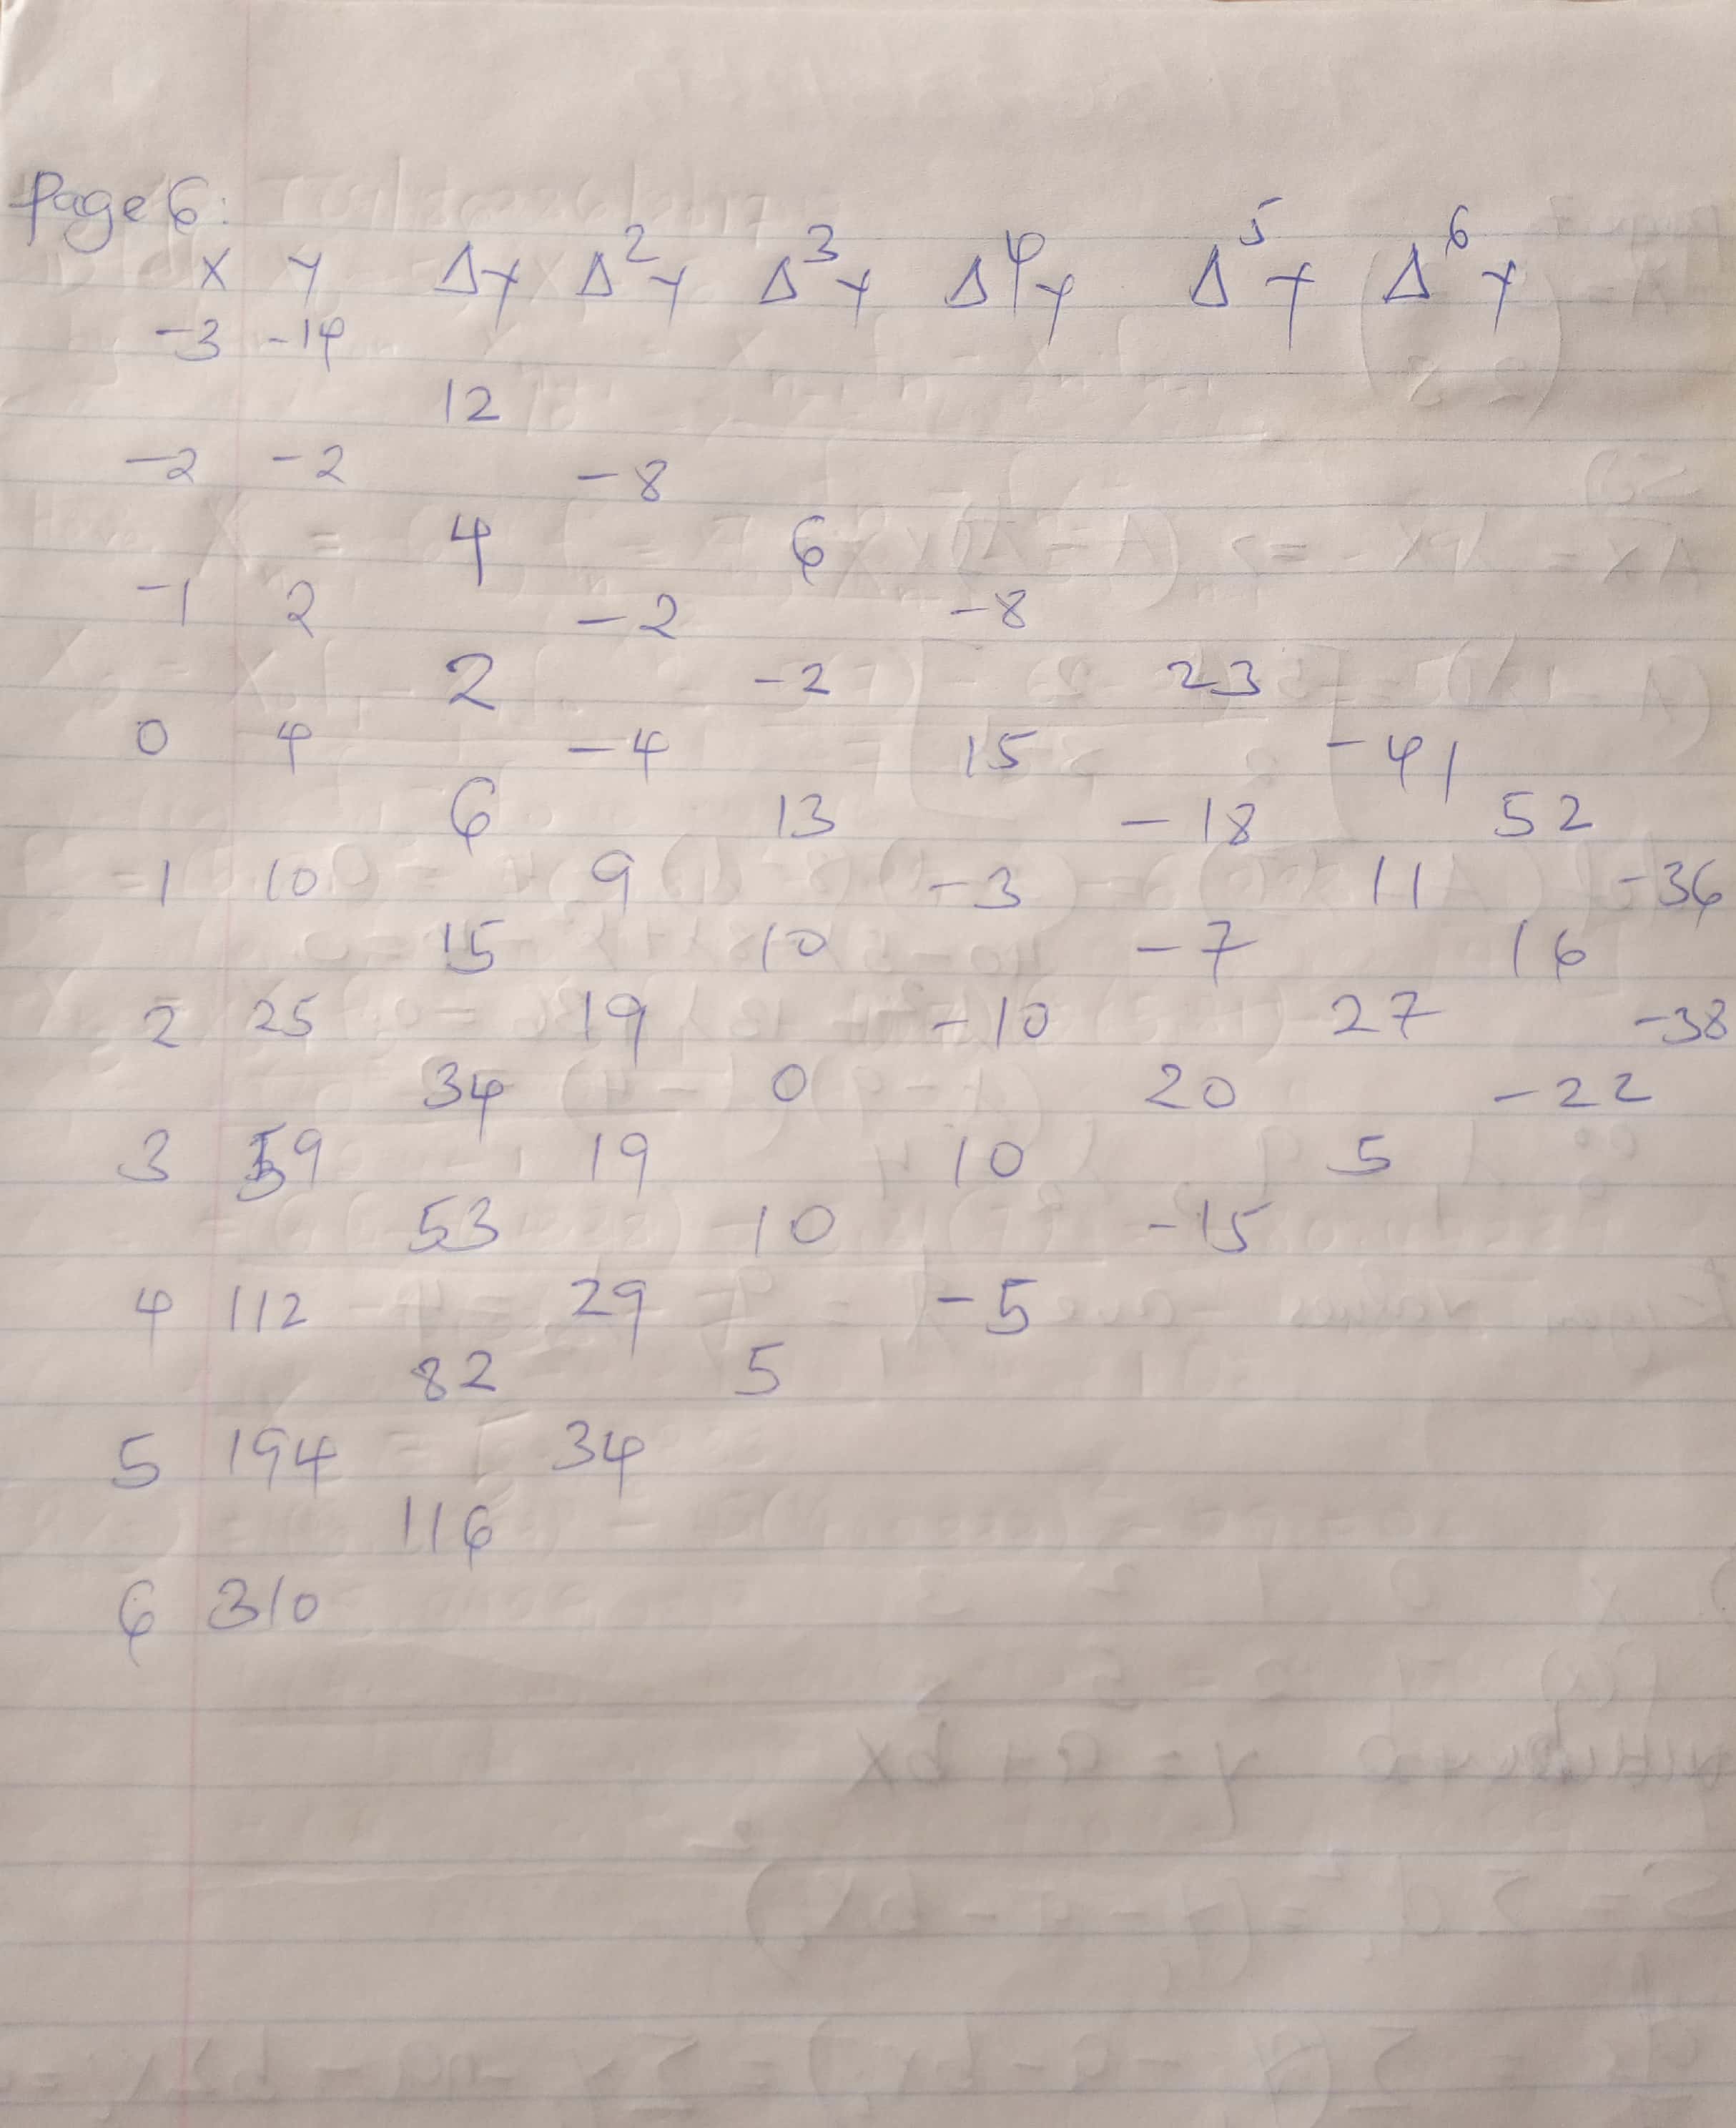 Page 6:
X Y Δy Δ²y Δ³y Δ⁴y Δ⁵y Δ⁶y
-3 -14
12
-2 -2 -8
4 6
-1 2 -2 -8
2 -2 23
0 4 -4 15 -41
6 13 -18 52
1 10 9 -3 11 -36
15 10 -7 16
2 25 19 -10 27 -38
34 0 20 -22
3 59 19 10 5
53 10 -15
4 112 29 -5
82 5
5 194 34
116
6 310